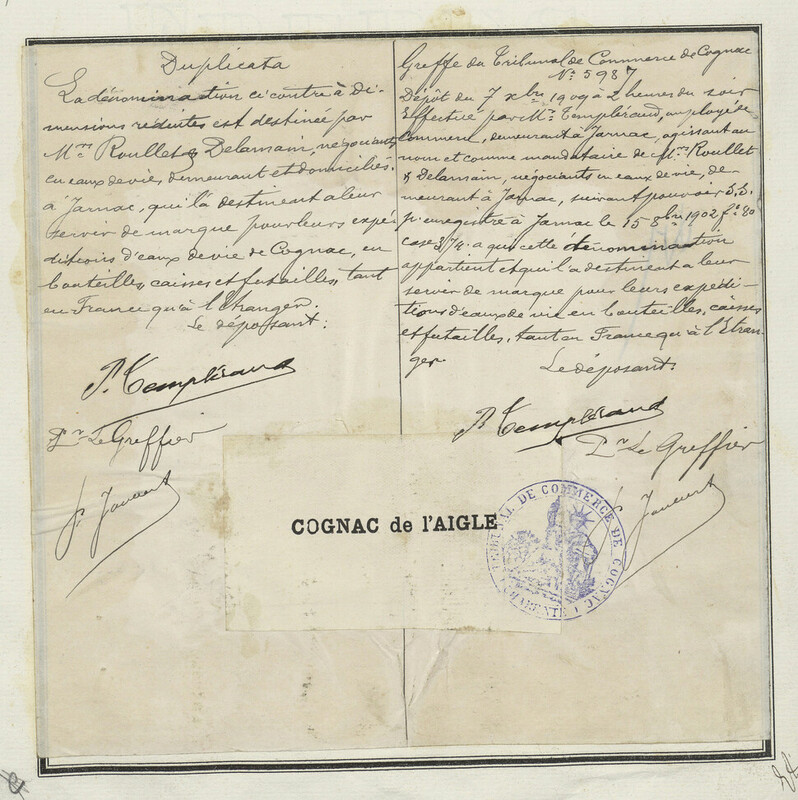 Duplicata
La dénomination ci contre à Di-
mensions réduites est destinée par
Mrs Roullet & Delamain, négociants
en eaux de vie, demeurant et domiciliés
à Jarnac, qui la destinent a leur
servir de marque pour leurs expé-
ditions d'eaux de vie de Cognac, en
bouteilles, caisses et futailles, tant
en France qu'à l'Etranger.
Le déposant:
P. Templéraud
Pr Le Greffier
Greffe du Tribunal de Commerce de Cognac
No 5987
Dépôt du 7 xbre 1909 à 2 heures du soir
Effectué par Mr Templéraud, employé de
Commerce, demeurant à Jarnac, agissant au
nom et comme mandataire de Mrs Roullet
& Delamain, négociants en eaux de vie, de-
meurant à Jarnac, suivant pouvoir S.S.
p. enregistré à Jarnac le 15 8bre 1902 fo 80
case 3/4. a que cette dénomination
appartient et qu'il a destinent a leur
servir de marque pour leurs expédi-
tions d'eaux de vie en bouteilles, caisses
et futailles, tant en France qu'à l'Etran-
ger.
Le déposant:
P. Templéraud
Pr Le Greffier
COGNAC de l'AIGLE
TRIBUNAL DE COMMERCE DE COGNAC
(CHARENTE)